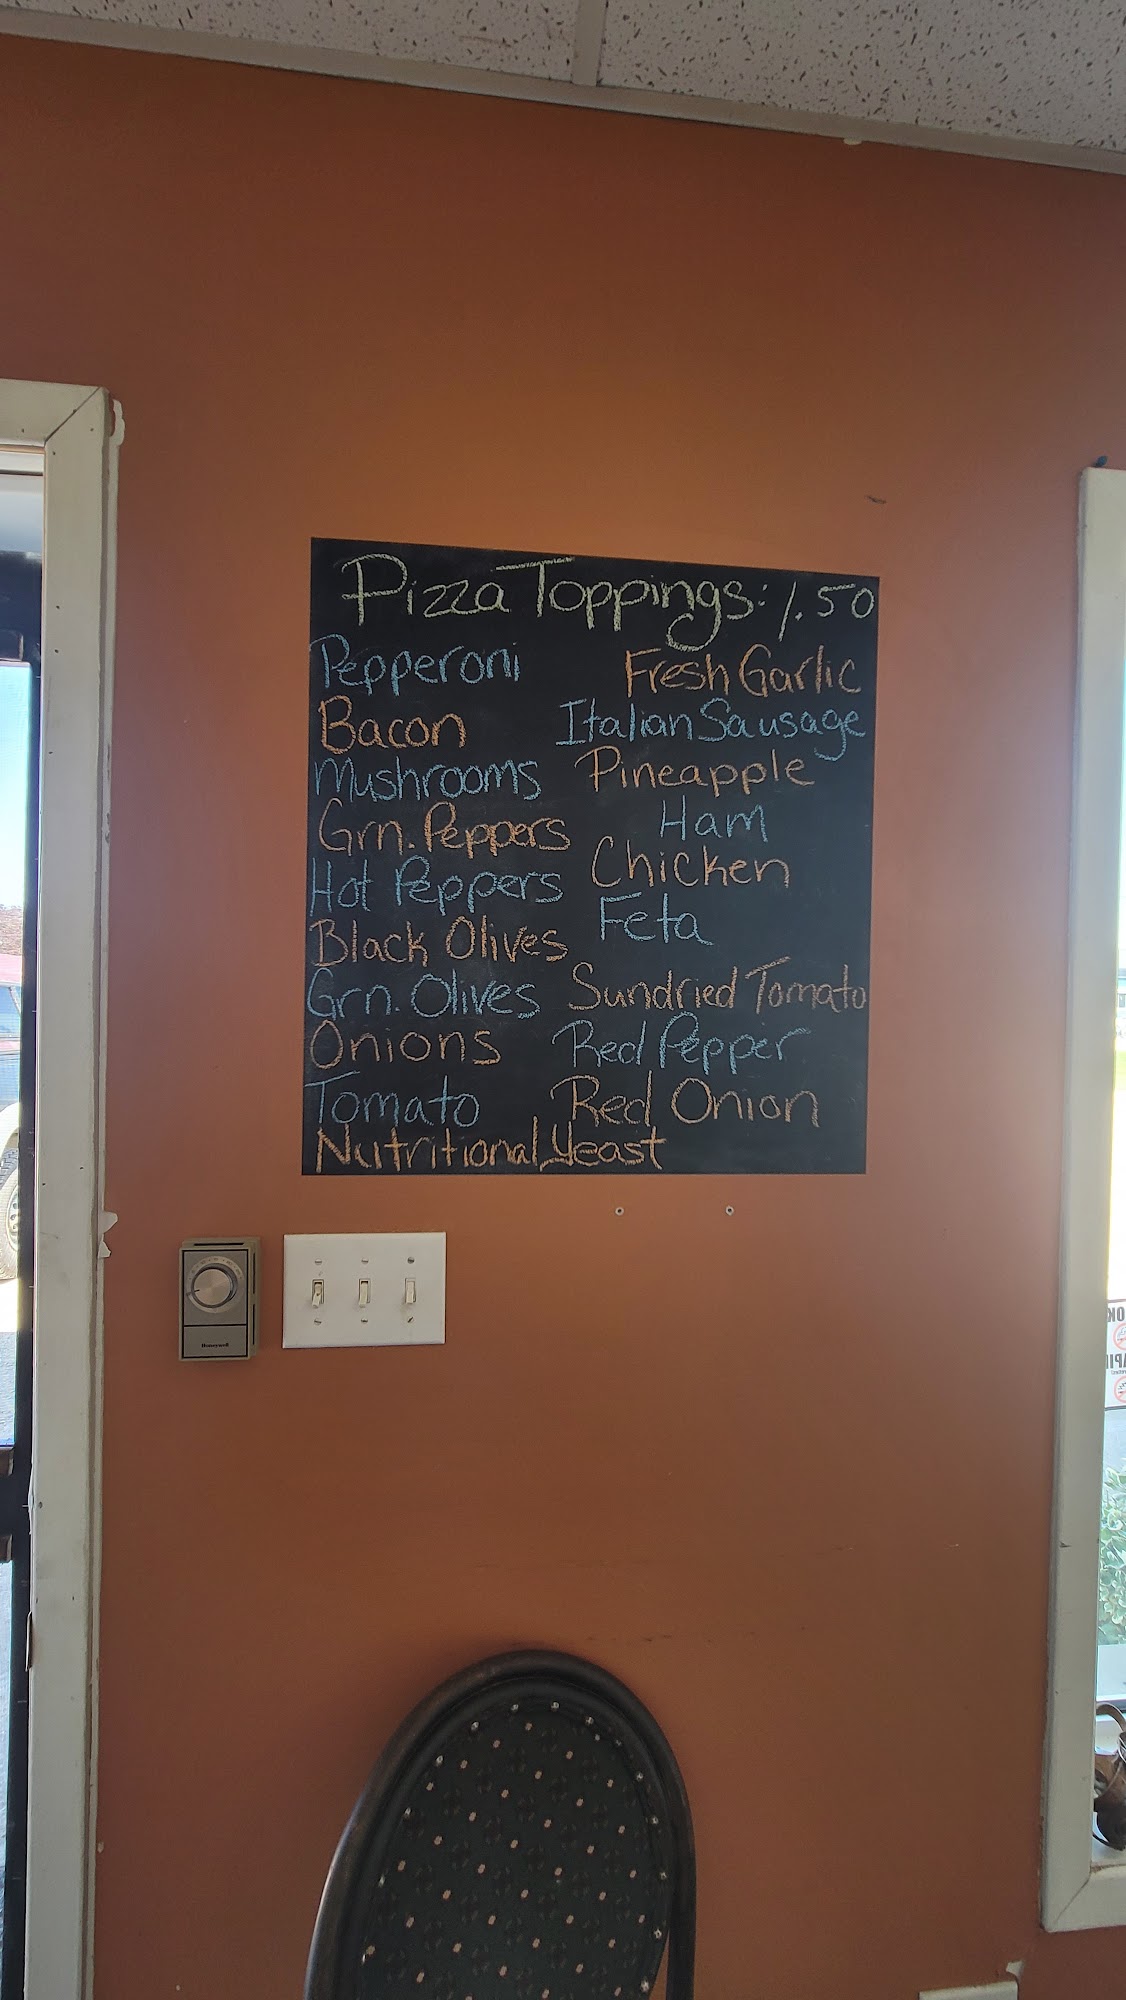 Pizza Toppings: 1.50
Pepperoni
Bacon
Mushrooms
Grn. Peppers
Hot Peppers
Black Olives
Grn. Olives
Onions
Tomato
Nutritional Yeast
Fresh Garlic
Italian Sausage
Pineapple
Ham
Chicken
Feta
Sundried Tomato
Red Pepper
Red Onion
Honeywell